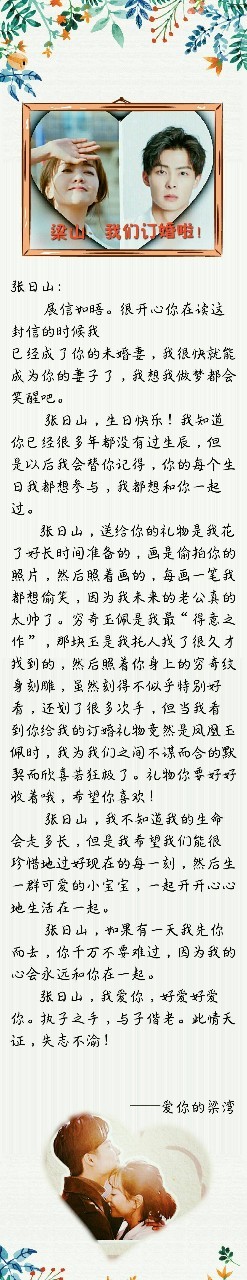 梁山：我们订婚啦！
张日山：
展信如晤。很开心你在读这
封信的时候我
已经成了你的未婚妻，我很快就能
成为你的妻子了，我想我做梦都会
笑醒吧。
张日山，生日快乐！我知道
你已经很多年都没有过生辰，但
是以后我会替你记得，你的每个生
日我都想参与，我都想和你一起
过。
张日山，送给你的礼物是我花
了好长时间准备的，画是偷拍你的
照片，然后照着画的，每画一笔我
都想偷笑，因为我未来的老公真的
太帅了。穷奇玉佩是我最“得意之
作”，那块玉是我托人找了很久才
找到的，然后照着你身上的穷奇纹
身刻雕，虽然刻得不似乎特别好
看，还划了很多次手，但当我看
到你给我的订婚礼物竟然是凤凰玉
佩时，我为我们之间不谋而合的默
契而欣喜若狂极了。礼物你要好好
收着哦，希望你喜欢！
张日山，我不知道我的生命
会走多长，但是我希望我们能很
珍惜地过好现在的每一刻，然后生
一群可爱的小宝宝，一起开开心心
地生活在一起。
张日山，如果有一天我先你
而去，你千万不要难过，因为我的
心会永远和你在一起。
张日山，我爱你，好爱好爱
你。执子之手，与子偕老。此情天
证，失志不渝！
——爱你的梁湾